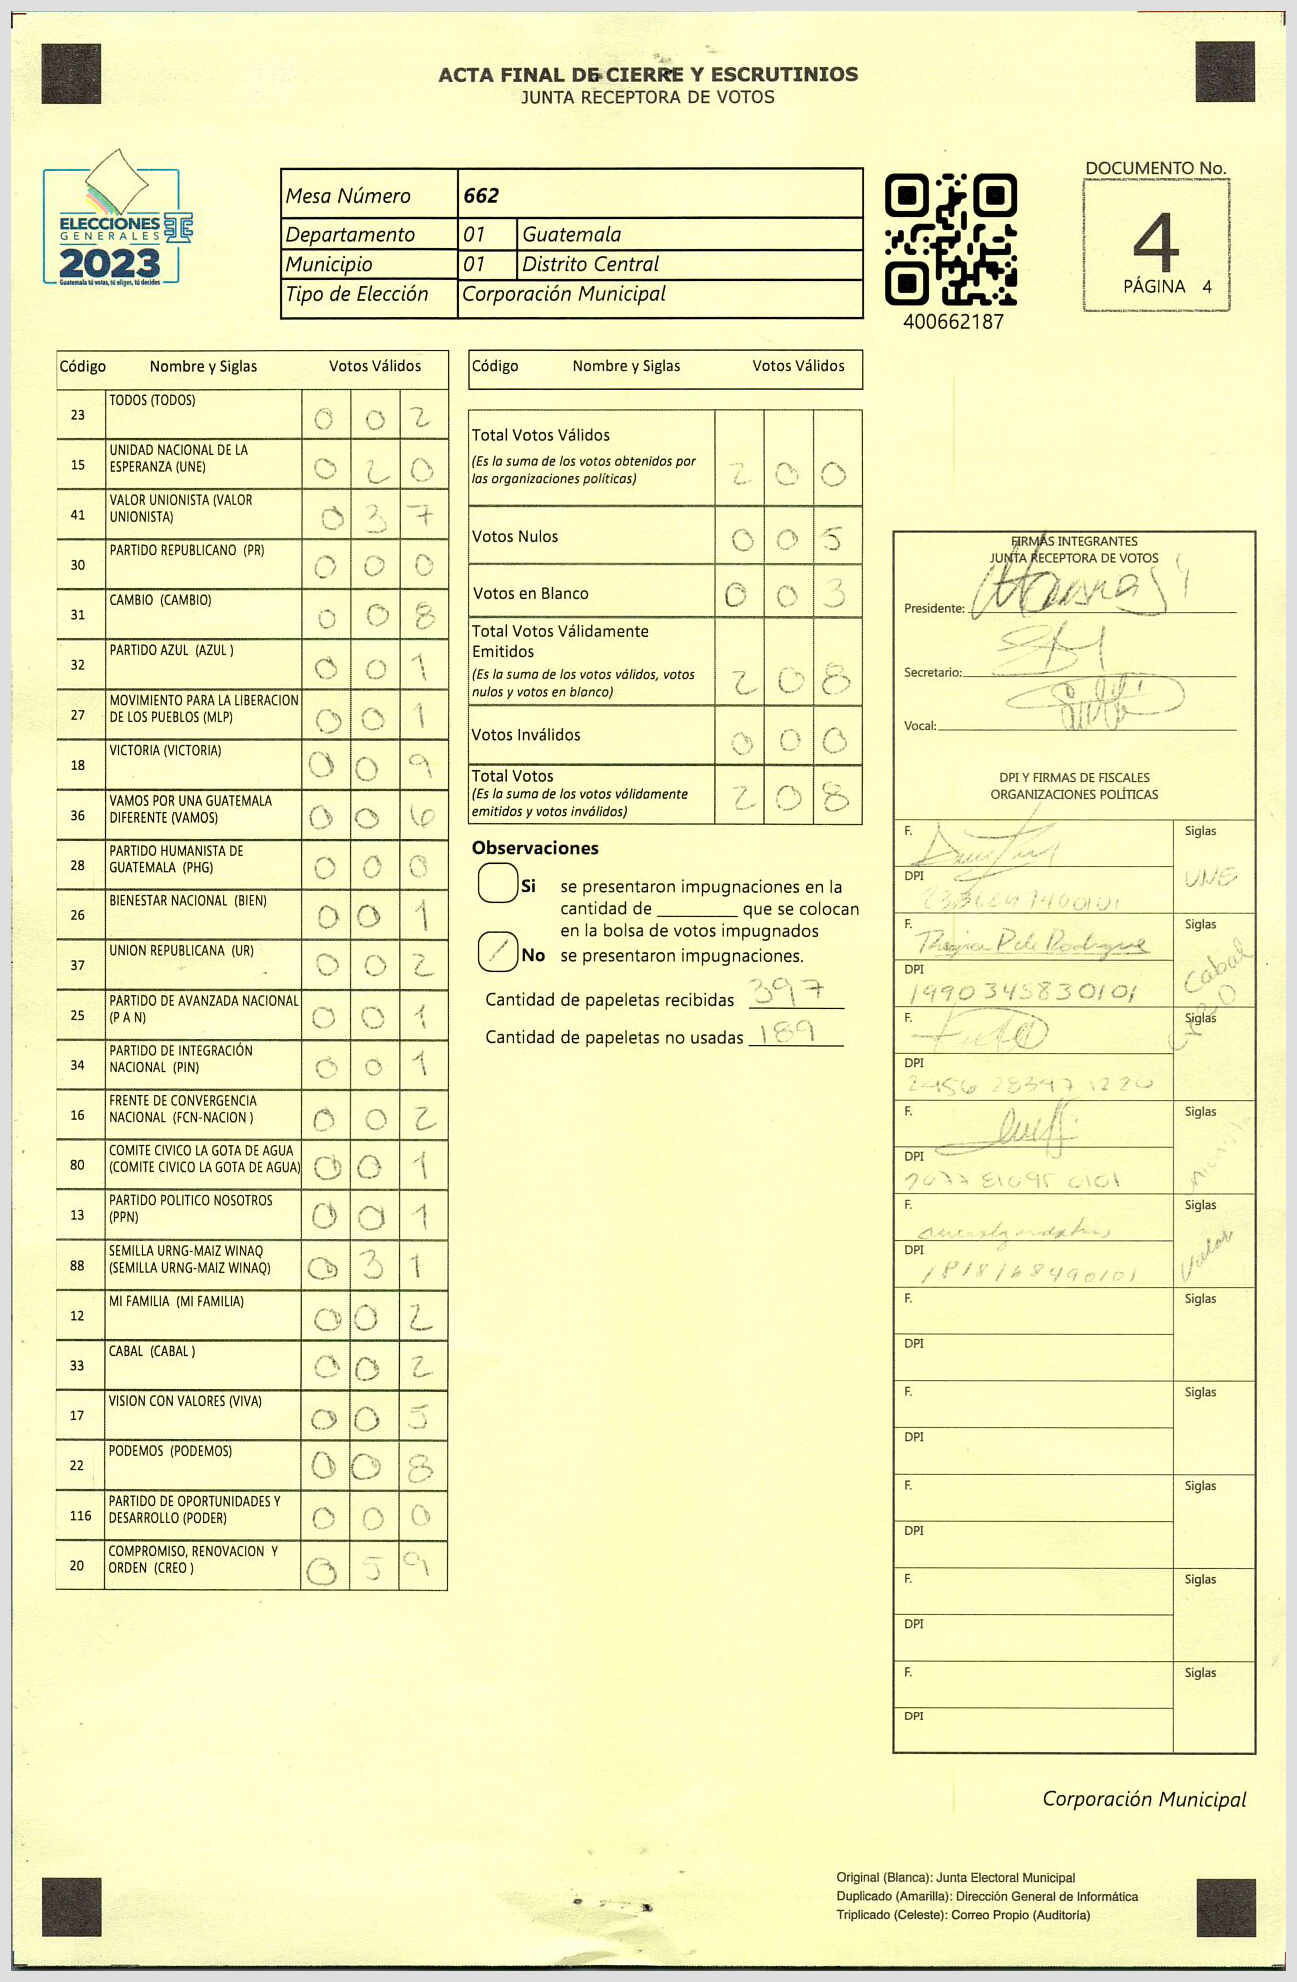 ACTA FINAL DE CIERRE Y ESCRUTINIOS
JUNTA RECEPTORA DE VOTOS
ELECCIONES
GENERALES
2023
Guatemala tú votas, tú eliges, tú decides
Mesa Número 662
Departamento 01 Guatemala
Municipio 01 Distrito Central
Tipo de Elección Corporación Municipal
400662187
DOCUMENTO No.
4
PÁGINA 4
Código Nombre y Siglas Votos Válidos
23 TODOS (TODOS) 0 0 2
15 UNIDAD NACIONAL DE LA
ESPERANZA (UNE) 0 2 0
41 VALOR UNIONISTA (VALOR
UNIONISTA) 0 3 7
30 PARTIDO REPUBLICANO (PR) 0 0 0
31 CAMBIO (CAMBIO) 0 0 8
32 PARTIDO AZUL (AZUL ) 0 0 1
27 MOVIMIENTO PARA LA LIBERACION
DE LOS PUEBLOS (MLP) 0 0 1
18 VICTORIA (VICTORIA) 0 0 9
36 VAMOS POR UNA GUATEMALA
DIFERENTE (VAMOS) 0 0 6
28 PARTIDO HUMANISTA DE
GUATEMALA (PHG) 0 0 0
26 BIENESTAR NACIONAL (BIEN) 0 0 1
37 UNION REPUBLICANA (UR) 0 0 2
25 PARTIDO DE AVANZADA NACIONAL
(P A N) 0 0 1
34 PARTIDO DE INTEGRACIÓN
NACIONAL (PIN) 0 0 1
16 FRENTE DE CONVERGENCIA
NACIONAL (FCN-NACION ) 0 0 2
80 COMITE CIVICO LA GOTA DE AGUA
(COMITE CIVICO LA GOTA DE AGUA) 0 0 1
13 PARTIDO POLITICO NOSOTROS
(PPN) 0 0 1
88 SEMILLA URNG-MAIZ WINAQ
(SEMILLA URNG-MAIZ WINAQ) 0 3 1
12 MI FAMILIA (MI FAMILIA) 0 0 2
33 CABAL (CABAL ) 0 0 2
17 VISION CON VALORES (VIVA) 0 0 5
22 PODEMOS (PODEMOS) 0 0 8
116 PARTIDO DE OPORTUNIDADES Y
DESARROLLO (PODER) 0 0 0
20 COMPROMISO, RENOVACION Y
ORDEN (CREO ) 0 5 9
Código Nombre y Siglas Votos Válidos
Total Votos Válidos
(Es la suma de los votos obtenidos por
las organizaciones políticas) 2 0 0
Votos Nulos 0 0 5
Votos en Blanco 0 0 3
Total Votos Válidamente
Emitidos
(Es la suma de los votos válidos, votos
nulos y votos en blanco) 2 0 8
Votos Inválidos 0 0 0
Total Votos
(Es la suma de los votos válidamente
emitidos y votos inválidos) 2 0 8
Observaciones
Si se presentaron impugnaciones en la
cantidad de ________ que se colocan
en la bolsa de votos impugnados
No se presentaron impugnaciones.
Cantidad de papeletas recibidas 397
Cantidad de papeletas no usadas 189
FIRMAS INTEGRANTES
JUNTA RECEPTORA DE VOTOS
Presidente:
Secretario:
Vocal:
DPI Y FIRMAS DE FISCALES
ORGANIZACIONES POLÍTICAS
F. Siglas
DPI UNE
F. Siglas
DPI 1490345830101 Cabal
F. Siglas
DPI
F. Siglas
DPI
F. Siglas
DPI 1818168490101 Valor
F. Siglas
DPI
F. Siglas
DPI
F. Siglas
DPI
F. Siglas
DPI
F. Siglas
DPI
Corporación Municipal
Original (Blanca): Junta Electoral Municipal
Duplicado (Amarilla): Dirección General de Informática
Triplicado (Celeste): Correo Propio (Auditoría)